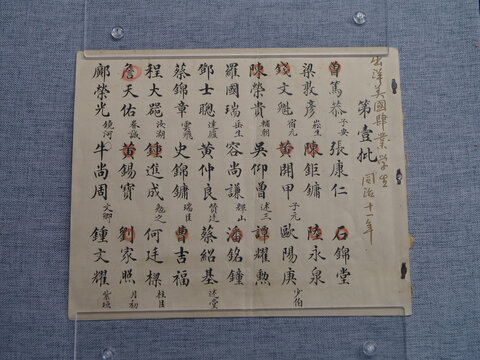 出洋美國肄業學生 同治十一年
第壹批
曾篤恭 子安 張康仁 石錦堂
梁敦彥 崧生 陳鉅鏞 陸永泉
錢文魁 黃開甲 子元 歐陽庚 少伯
陳榮貴 輔朝 吳仰曾 述三 譚耀勳
羅國瑞 岳生 容尚謙 潘銘鐘
鄧士聰 黃仲良 贊廷 蔡紹基 述堂
蔡錦章 雲飛 史錦鏞 瑞臣 曹吉福
程大器 汝湖 鍾進成 勉之 何廷樑 柱臣
詹天佑 眷誠 黃錫寶 劉家照 月初
鄺榮光 鏡河 牛尚周 文卿 鍾文耀 紫垣